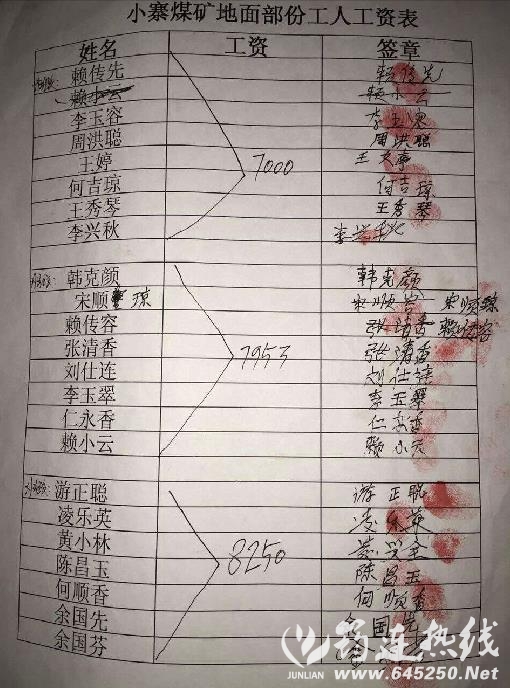 小寨煤矿地面部份工人工资表
姓名 工资 签章
赖传先 赖传先
赖小云 赖小云
李玉容 李玉容
周洪聪 周洪聪
王婷 王文婷
何吉琼 7000 何吉琼
王秀琴 王秀琴
李兴秋 李兴秋
韩克颜 韩克颜
宋顺琼 宋顺容 宋顺琼
赖传容 张清香 赖传容
张清香 7953 张清香
刘仕连 刘仕连
李玉翠 李玉翠
仁永香 仁永香
赖小云 赖小云
游正聪 游正聪
凌乐英 凌乐英
黄小林
陈昌玉 8250 陈昌玉
何顺香 何顺香
余国先 余国先
余国芬
筠连热线
JUNLIAN www.645250.Net